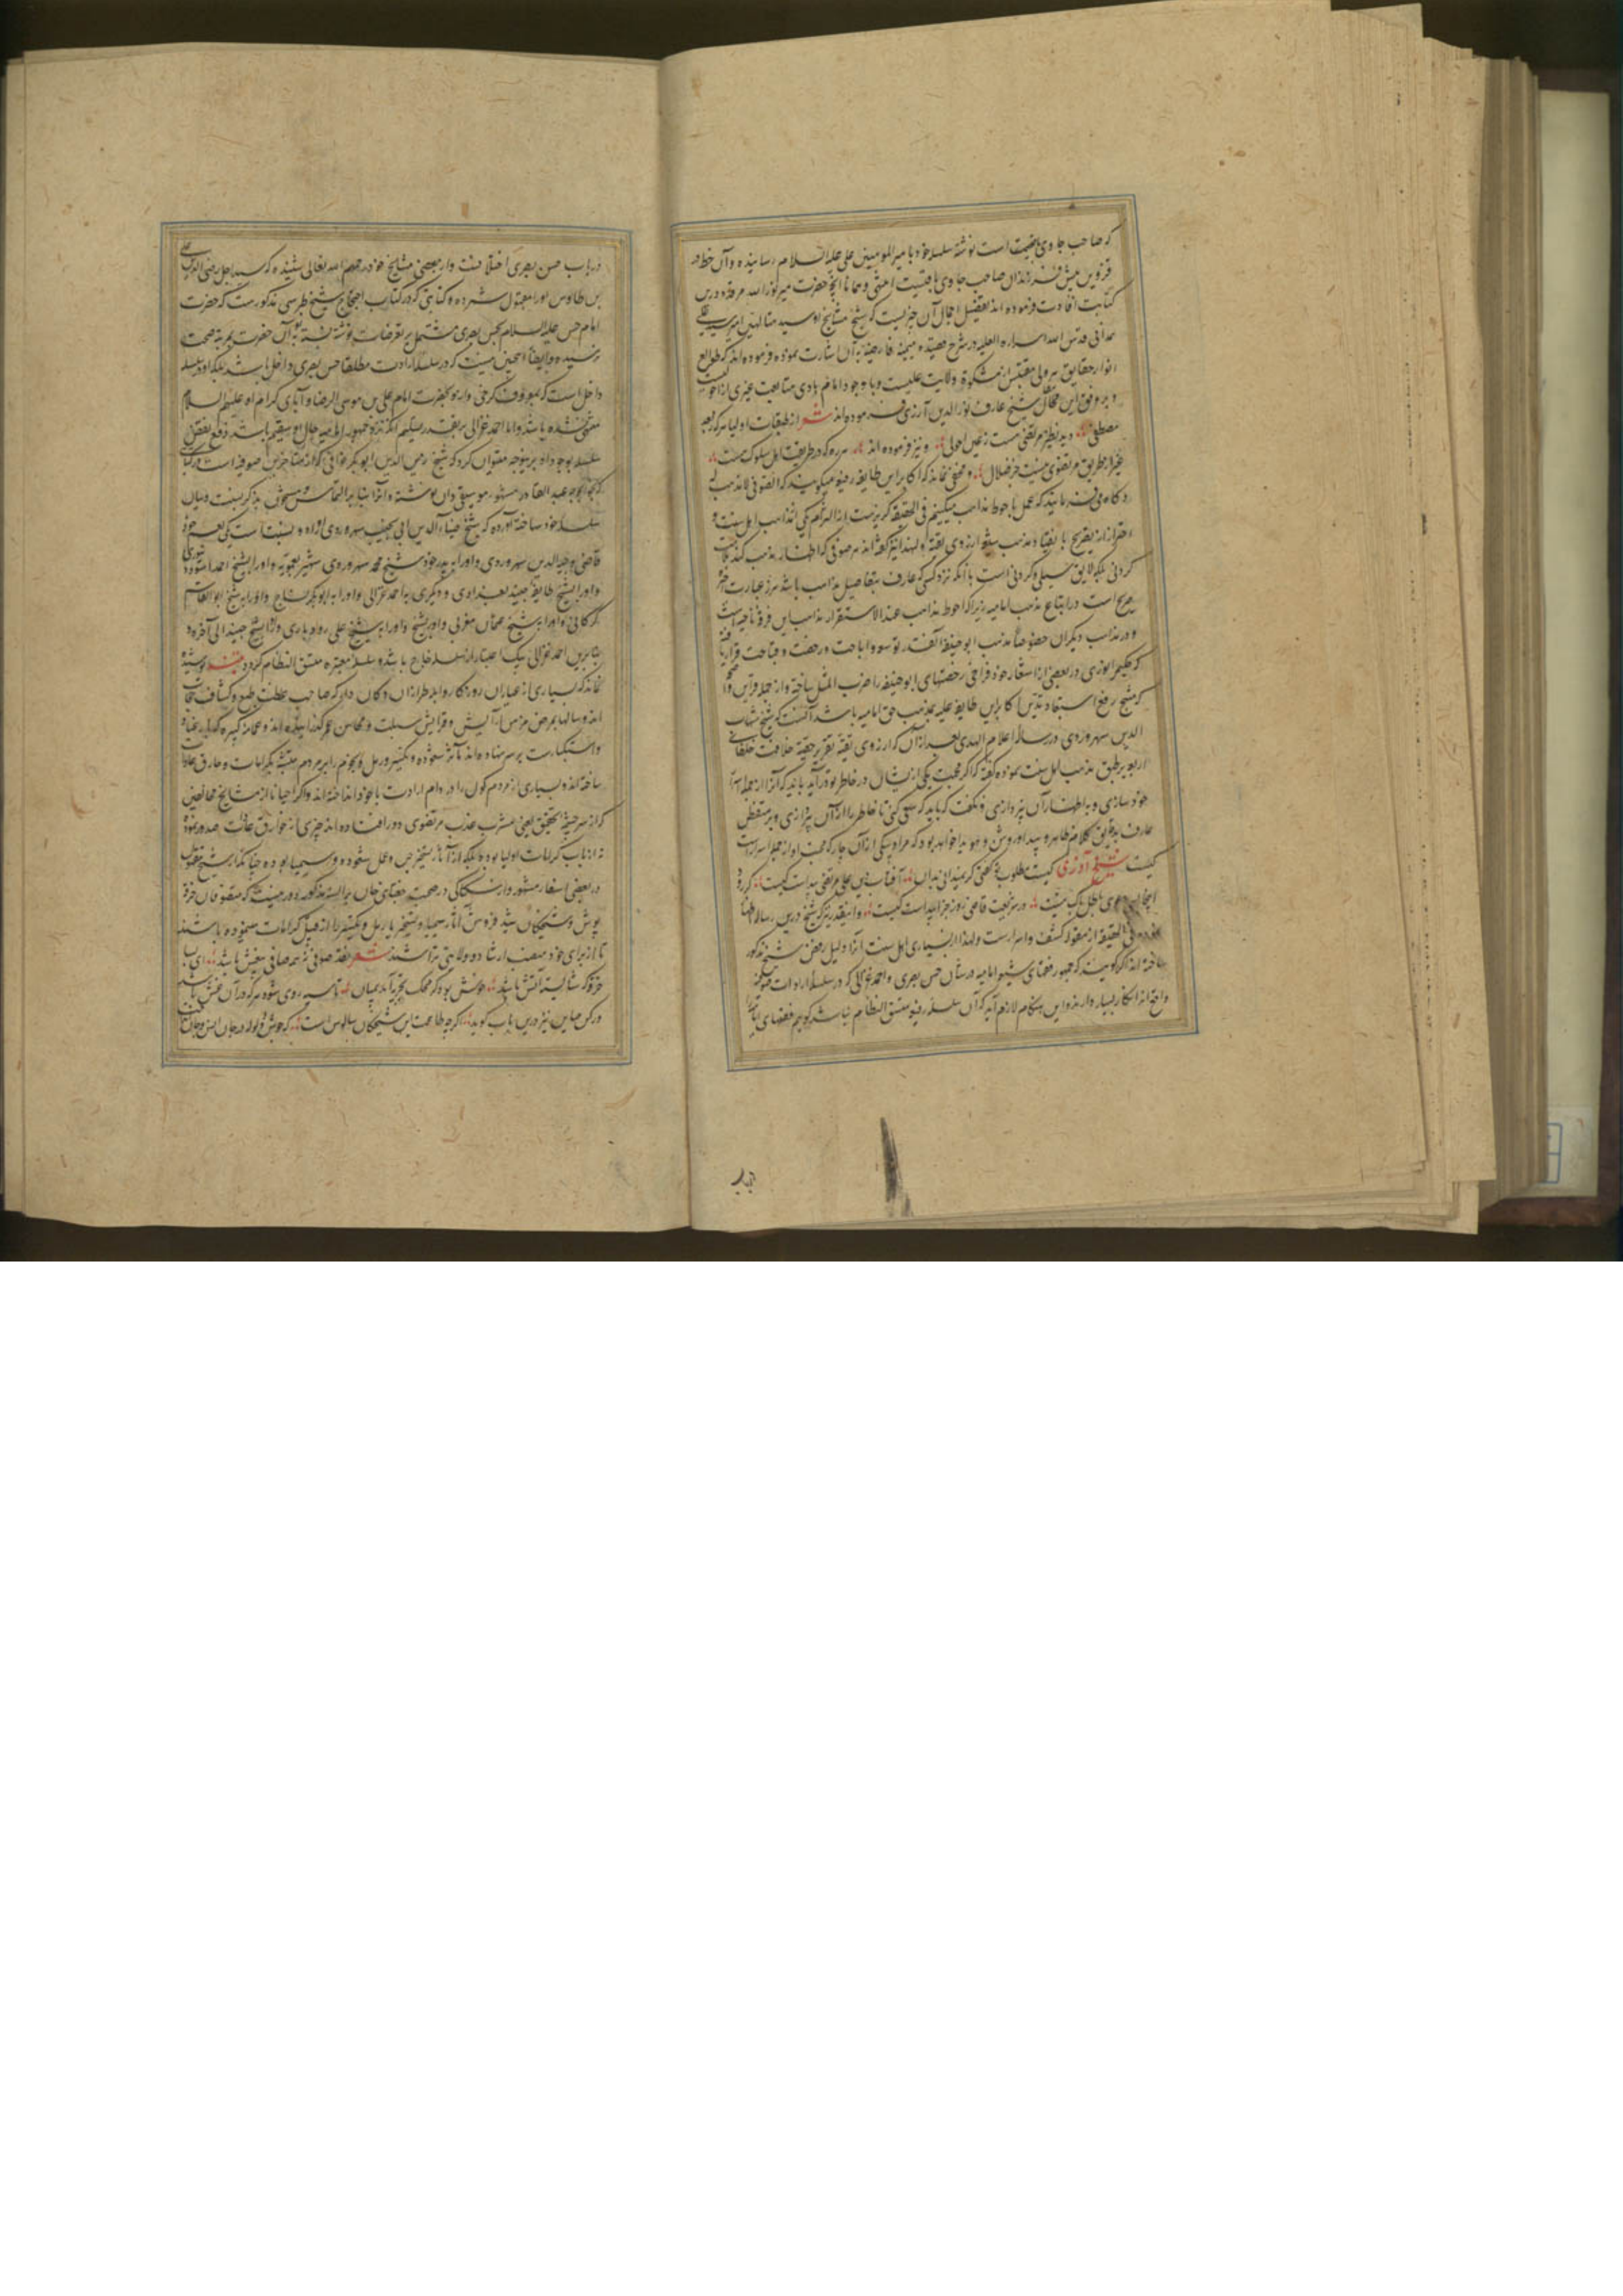 که صاحب جاوی بقیمت است نوشته سلسله خود با میرالمومنین علی علیه السلام رسانیده وآن خط در
قزوین پیش فرزندان صاحب جاوی حضرت میر نورالله مرقده درین
کتابت افادت فرموده اند تفصیل اجمال آن چیزیست که شیخ مشایخ او سید متالهین امیر سید علی
همدانی قدس الله اسراره العلیه در شرح قصیده میمیه فارضیه به آن اشارت نموده و فرموده اند که طوالع
انوار حقایق هر ولی مقتبس از مشکوة ولایت علیست و با وجود امام هادی متابعت غیری از احولیست
و بر وفق این مقال شیخ عارف نورالدین آذری فرموده اند شعر از طبقات اولیا هر که بعد
مصطفی دید نظیر مرتضی هست ز عین احولی و نیز فرموده اند هر ره که در طریقت اهل سلوک هست
غیر از طریق مرتضوی نیست جز ضلال و مخفی نماند که اکابر این طایفه رضیه میگویند که الصوفی لا مذهب له
و گاه می فرمایند که عمل باحوط مذاهب میکنیم فی الحقیقه گریزست از التزام یکی از مذاهب اهل سنت و
احتراز از تصریح با اعتقاد مذهب شیعه از روی تقیه و لهذا نیز گفته اند هر صوفی که اظهار مذهب کند
گردنی بلکه لایق سیلی و گردنی است با آنکه نزد کسی که عارف بتفاصیل مذاهب باشد مرز عبارت
صریح است در اتباع مذهب امامیه زیرا که احوط مذاهب عند الاستقرار مذاهب این فرقه ناجیه است
و در مذاهب دیگران خصوصا مذهب ابوحنیفه آنقدر توسع و اباحت و رخصت و قباحت قرار یافته
که حکیم انوری در بعضی از اشعار خود فراخی رخصتهای ابوحنیفه را ضرب المثل ساخته و از جمله قراین واضحه
که منتج رفع استبعاد تدین اکابر این طایفه علیه بمذهب حق امامیه باشد آنست که شیخ شهاب
الدین سهروردی در رساله اعلام الهدی بعد از آن که از روی تقیه تقریر حقیة خلافت خلفای
اربعه بر طبق مذهب اهل سنت نموده گفته که اگر محبت یکی ازیشان در خاطر تو درآید باید که آنرا از جمله اسرار
خود سازی و به اظهار آن نپردازی و نگفت که باید که سعی کنی تا خاطر را از آن بپردازی و بر متفطن
عارف بدقایق کلام ظاهر و پیدا و روشن و هویدا خواهد بود که مراد یکی از آن چار که محبت او از جمله اسرار است
کیست شیخ آذری کیست مطلوب که گفتی که نمیدانی بدان آفتاب دین علی مرتضی بدانست کیست گر درو
اینجا دعوی باطل باک نیست در شریعت قاضی روز جزا پیداست کیست و اینقدر نیز که شیخ درین رساله اظهار
نموده فی الحقیقه از مقوله کشف و اسرارست ولهذا بسیاری اهل سنت آنرا دلیل رفض شیخ مذکور
ساخته اند اگر گویند که جمهور فقهای شیعه امامیه در شان حسن بصری و احمد غزالی که در سلسله ارادات صوفیه
واقع اند انکار بسیار دارند و این هنگام لازم آید که آن سلسله رضیه متسق النظام نباشد گوییم فقهای امامیه را
درباب حسن بصری اختلافست واز بعضی مشایخ خود رحمهم الله تعالی شنیده که سید اجل رضی الدین علی
بن طاوس او را مقبول شمرده و کتابتی که در کتاب احتجاج شیخ طبرسی مذکورست که حضرت
امام حسن علیه السلام بحسن بصری مشتمل بر تعرضات نوشته نسبت آن حضرت بمرتبه صحت
نرسیده و ایضا اینچنین نیست که در سلسله ارادت مطلقا حسن بصری داخل باشد بلکه او در سلسله
داخل است که بمعروف کرخی و از و بحضرت امام علی بن موسی الرضا و آبای کرام او علیهم السلام
منتهی نشده باشد و اما احمد غزالی بر تقدیر تسلیم آنکه نزد جمهور امامیه حال او سقیم باشد دفع نقض
سلسله بوجود او برینوجه میتوان کرد که شیخ زین الدین ابوبکر خوافی که از متاخرین صوفیه است در کتابتی
که بخواجه عبد القادر مشهور موسیقی دان نوشته و آنرا بنا بر التماس او مشحون بذکر نسبت و بیان
سلسله خود ساخته آورده که شیخ ضیاء الدین ابی نجیب سهروردی را دو نسبت است یکی بعم خود
قاضی وجیه الدین سهروردی و او را به پدر خود شیخ محمد سهروردی شهیر بعمویه و او را بشیخ احمد اسود دینوری
و او را بشیخ طایفه جنید بغدادی و دیگری به احمد غزالی و او را به ابوبکر نساج و او را به شیخ ابوالقاسم
گرگانی و او را به شیخ عثمان مغربی و او را بشیخ و او را به شیخ علی رودباری و او را بشیخ جنید الی آخره و
بنابرین احمد غزالی بیک اعتبار از سلسله خارج باشد و سلسله معتبره متسق النظام گردد تتمه پوشیده
نماند که بسیاری از عیاران روزگار و ابله طرازان دکان دار که صاحب عظمت طبع و کثافت حجاب
اند و سالها بمرض مزمن آرایش و فزایش سبلت و محاسن عمر گذرانیده اند و عمامه کبیره
و استکبارت بر سر نهاده اند تا شعوده و تکثیر و رمل و نجوم را بر مردم مشتبه بکرامات و خارق عادات
ساخته اند و بسیاری از مردم کول را در دام ارادت باخود انداخته اند و اگر احیانا از مشایخ مخالفین
که از سرچشمه تحقیق یعنی مشرب عذب مرتضوی دور افتاده اند چیزی از خوارق عادات صدور نموده
نه از باب کرامات اولیا بوده بلکه از آثار تسخیر جن و عمل شعوده و سیمیا بوده چنانکه از شیخ مقتول
در بعضی اسفار مشهور وارستگی در صحبت جفتای خان بر السنه مذکوره و عجب نیست که متصوفان خرقه
پوش و شیخکان شید فروش آثار سیمیا و تسخیر یا رمل و تکثیر را از قبیل کرامات نموده باشند
تا از برای خود منصب ارشاد و ولایتی تراشند شعر نقد صوفی نه همه صافی بیغش باشد ای بسا
خرقه که شایسته آتش باشد خوش بود گر محک تجربه آید بمیان تا سیه روی شود هر که درو غش باشد
و رکن صاین نیز درین باب گوید اگرچه طاعت این شیخکان سالوس است که جوش و ولوله در جان انس و جان انداخت